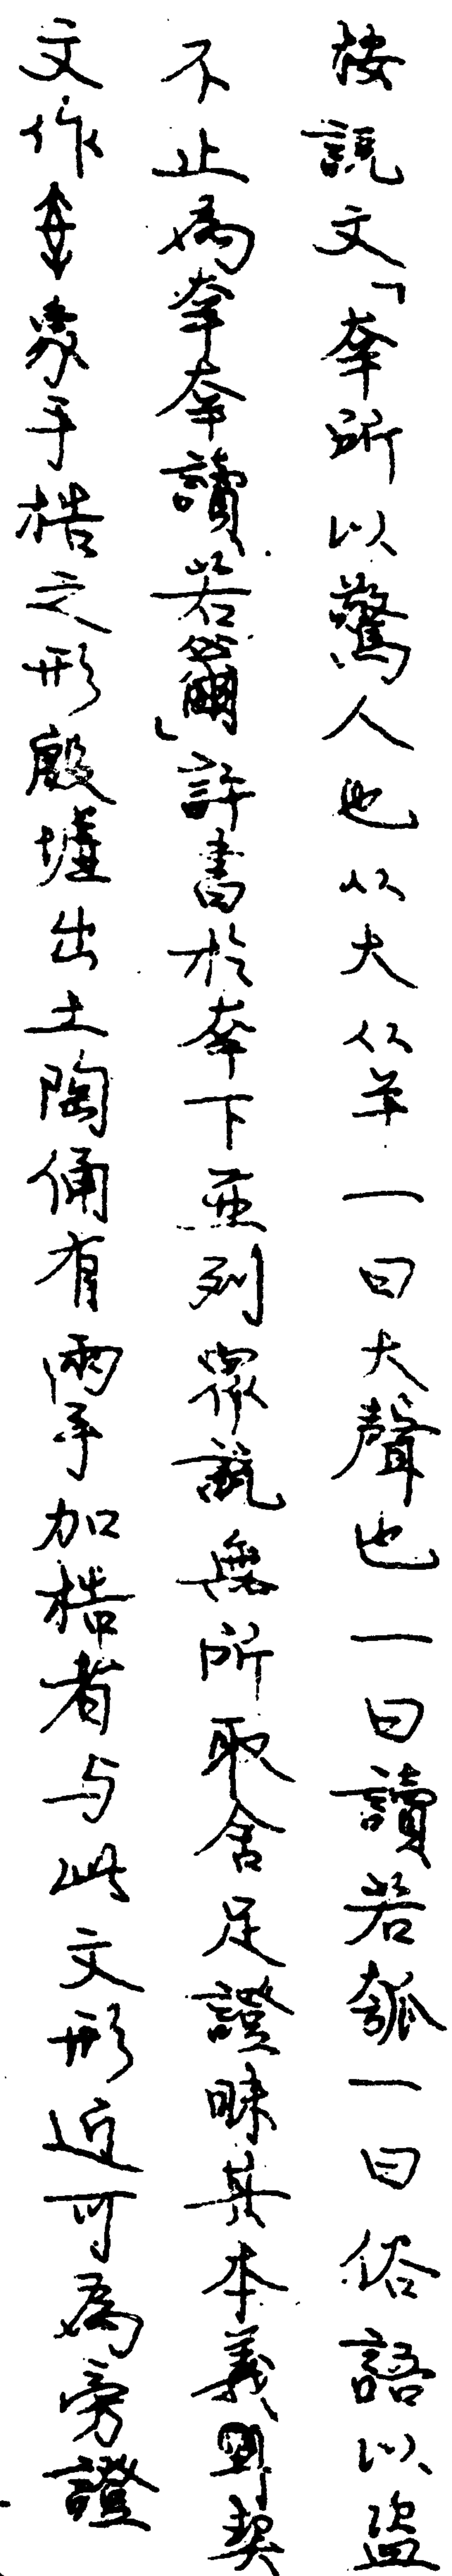 按說文「㚔所以驚人也从大从𢆉一曰大聲也一曰讀若瓠一曰俗語以盜
不止為㚔㚔讀若籋」許書於㚔下並列眾說無所取舍足證昧其本義卜辭契
文作象手梏之形殷墟出土陶俑有兩手加梏者与此文形近可為旁證